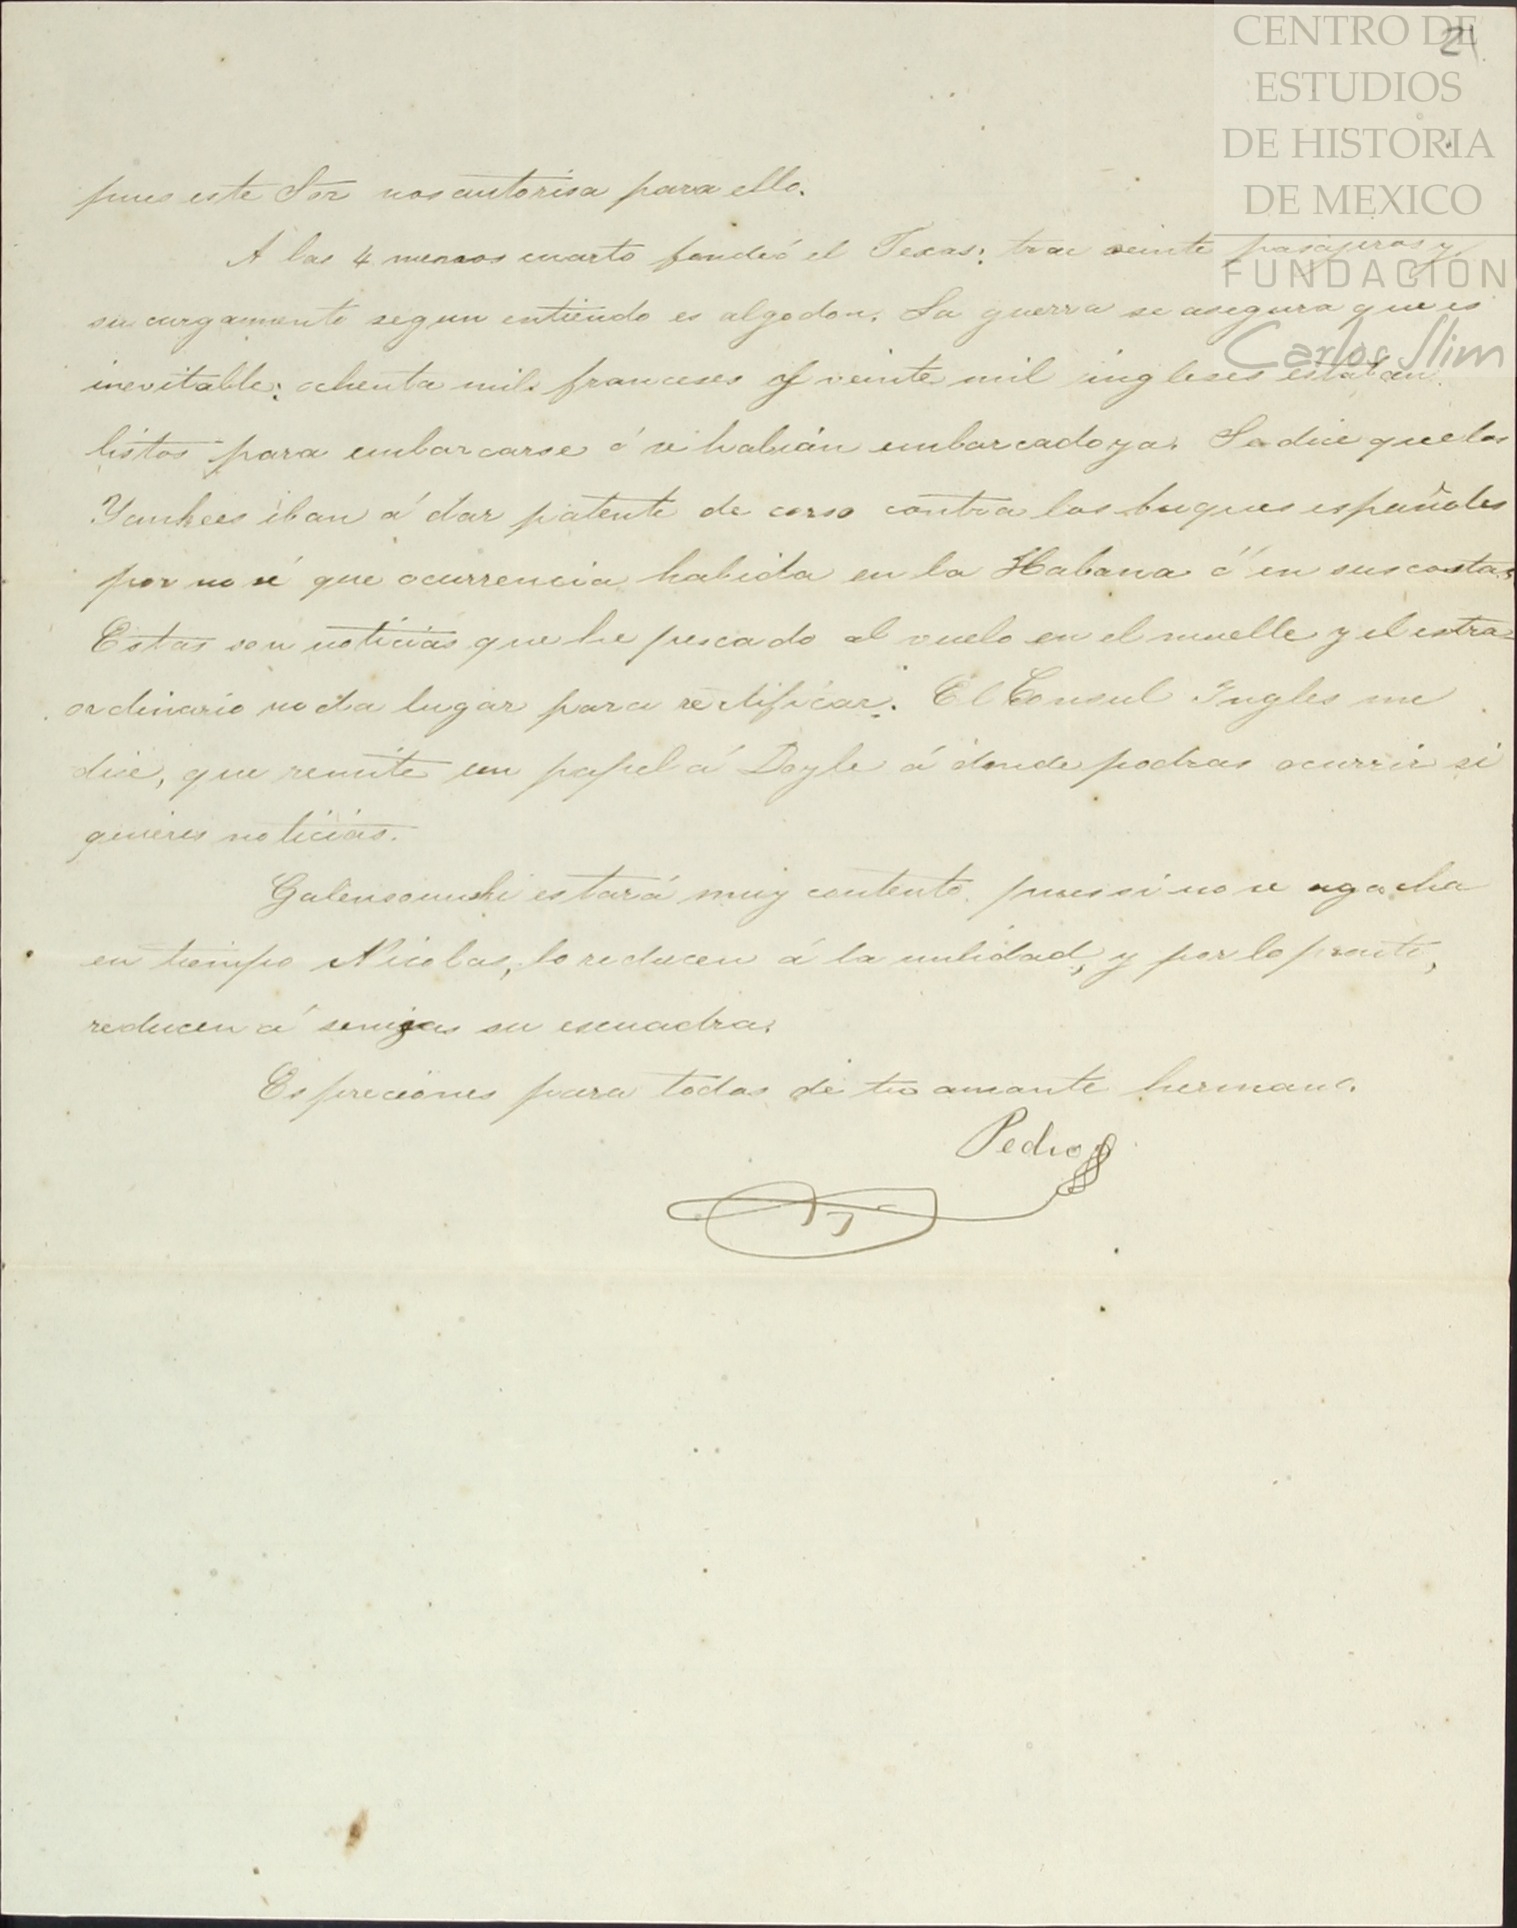 CENTRO DE
ESTUDIOS
DE HISTORIA
DE MEXICO
FUNDACIÓN
Carlos Slim
2
pues este Sor nos autorisa para ello.
A las 4 menos cuarto fondeó el Texas; trae veinte pasajeros y
su cargamento segun entiendo es algodon. La guerra se asegura que es
inevitable; ochenta mil franceses y veinte mil ingleses estaban
listos para embarcarse ó se habián embarcado ya. Se dice que los
Yankees iban á dar patente de corso contra los buques españoles
por no sé que ocurrencia habida en la Habana ó en sus costas.
Estas son noticias que he pescado al vuelo en el muelle y el estra-
ordinario no da lugar para rectificar. El Consul Ingles me
dice, que remite un papel á Doyle á donde podras ocurrir si
quieres noticias.
Galensouski estará muy contento, pues si no se agacha
en tiempo Nicolas, lo reducen á la nulidad, y por lo pronto,
reducen á senizas su escuadra.
Espreciones para todas de tu amante hermano.
Pedro